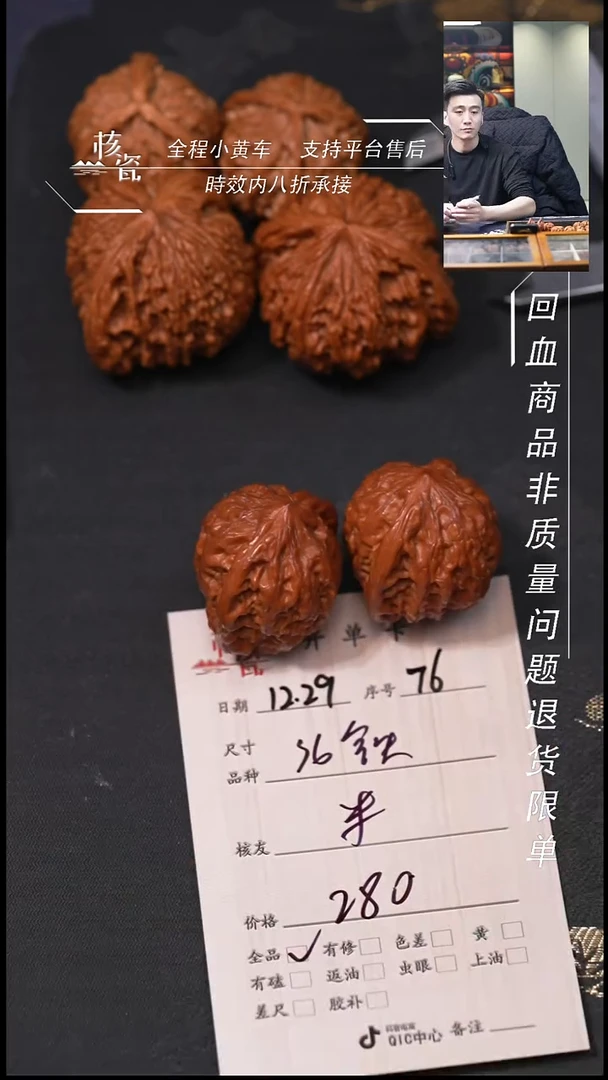 核瓷
全程小黄车 支持平台售后
時效内八折承接
回血商品非质量问题退货限单
核瓷 开单卡
日期 12.29 序号 76
尺寸
品种 36
核友 半
价格 280
全品 ✓ 有修 色差 黄
有磕 返油 虫眼 上油
差尺 胶补
抖音电商
QIC中心 备注